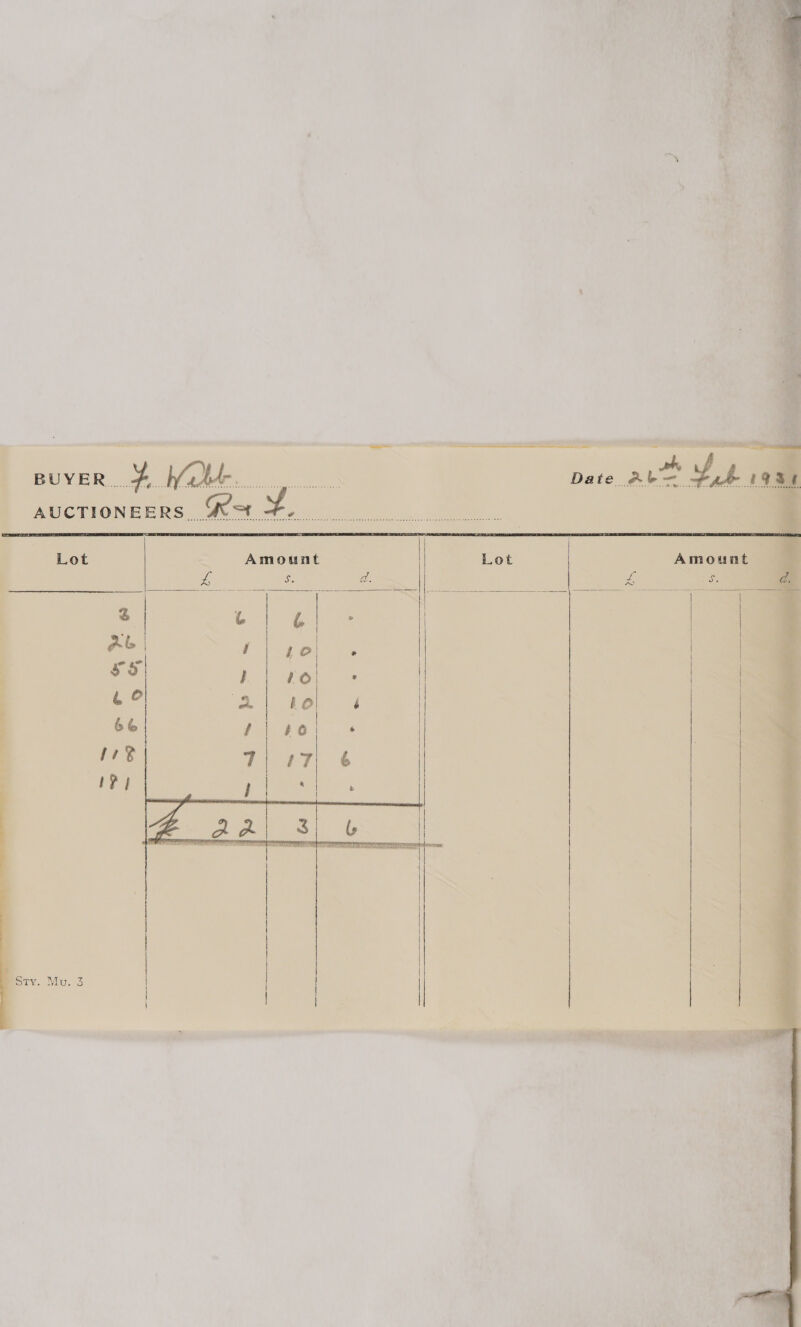 BUYER F. Webb. Date 26th Feb 1931
AUCTIONEERS R & F.
Lot Amount Lot Amount
£ s. d. £ s. d.
3 6 6 -
26 1 10 -
55 1 10 -
60 2 10 -
66 1 10 -
118 7 17 6
181 1 - -
£ 22 3 6
STY. MU. 3